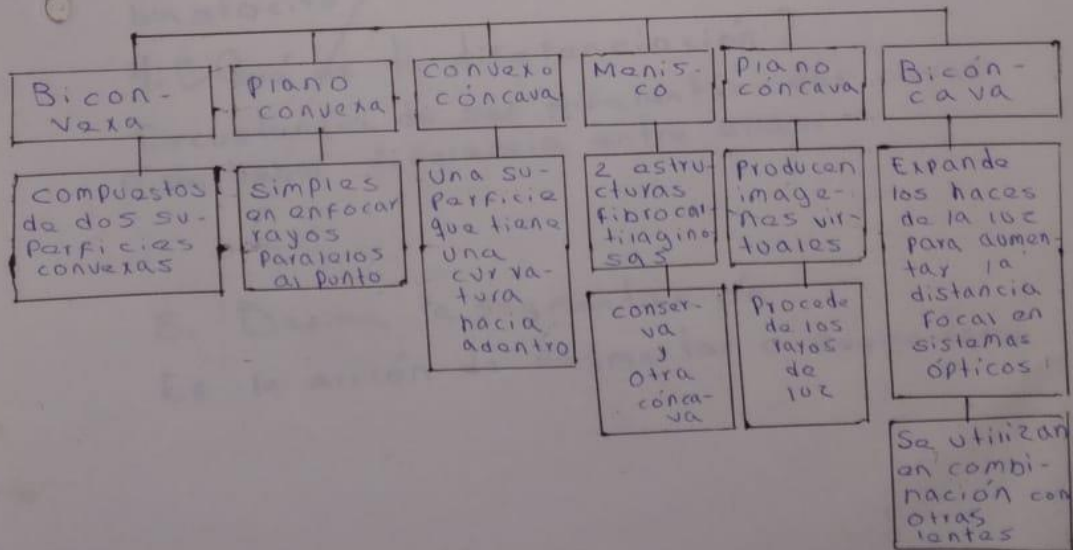 Bicon-
vexa
compuestos
de dos su-
perficies
convexas
Plano
convexa
simples
en enfocar
rayos
paralelos
al punto
convexo
cóncava
Una su-
perficie
que tiene
una
curva-
tura
hacia
adentro
Menis-
co
2 estru-
cturas
fibrocar-
tilagino
sas
conser-
va
y
otra
cónca-
va
Plano
cóncava
Producen
imáge-
nes vir-
tuales
Procede
de los
rayos
de
luz
Bicón-
cava
Expande
los haces
de la luz
para aumen-
tar la
distancia
focal en
sistemas
ópticos
Se utilizan
en combi-
nación con
otras
lentes